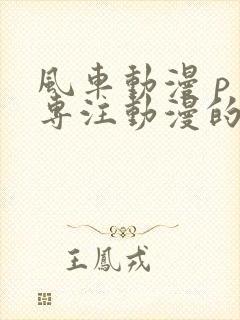 風車動漫 p
専注動漫的
王鳳戎